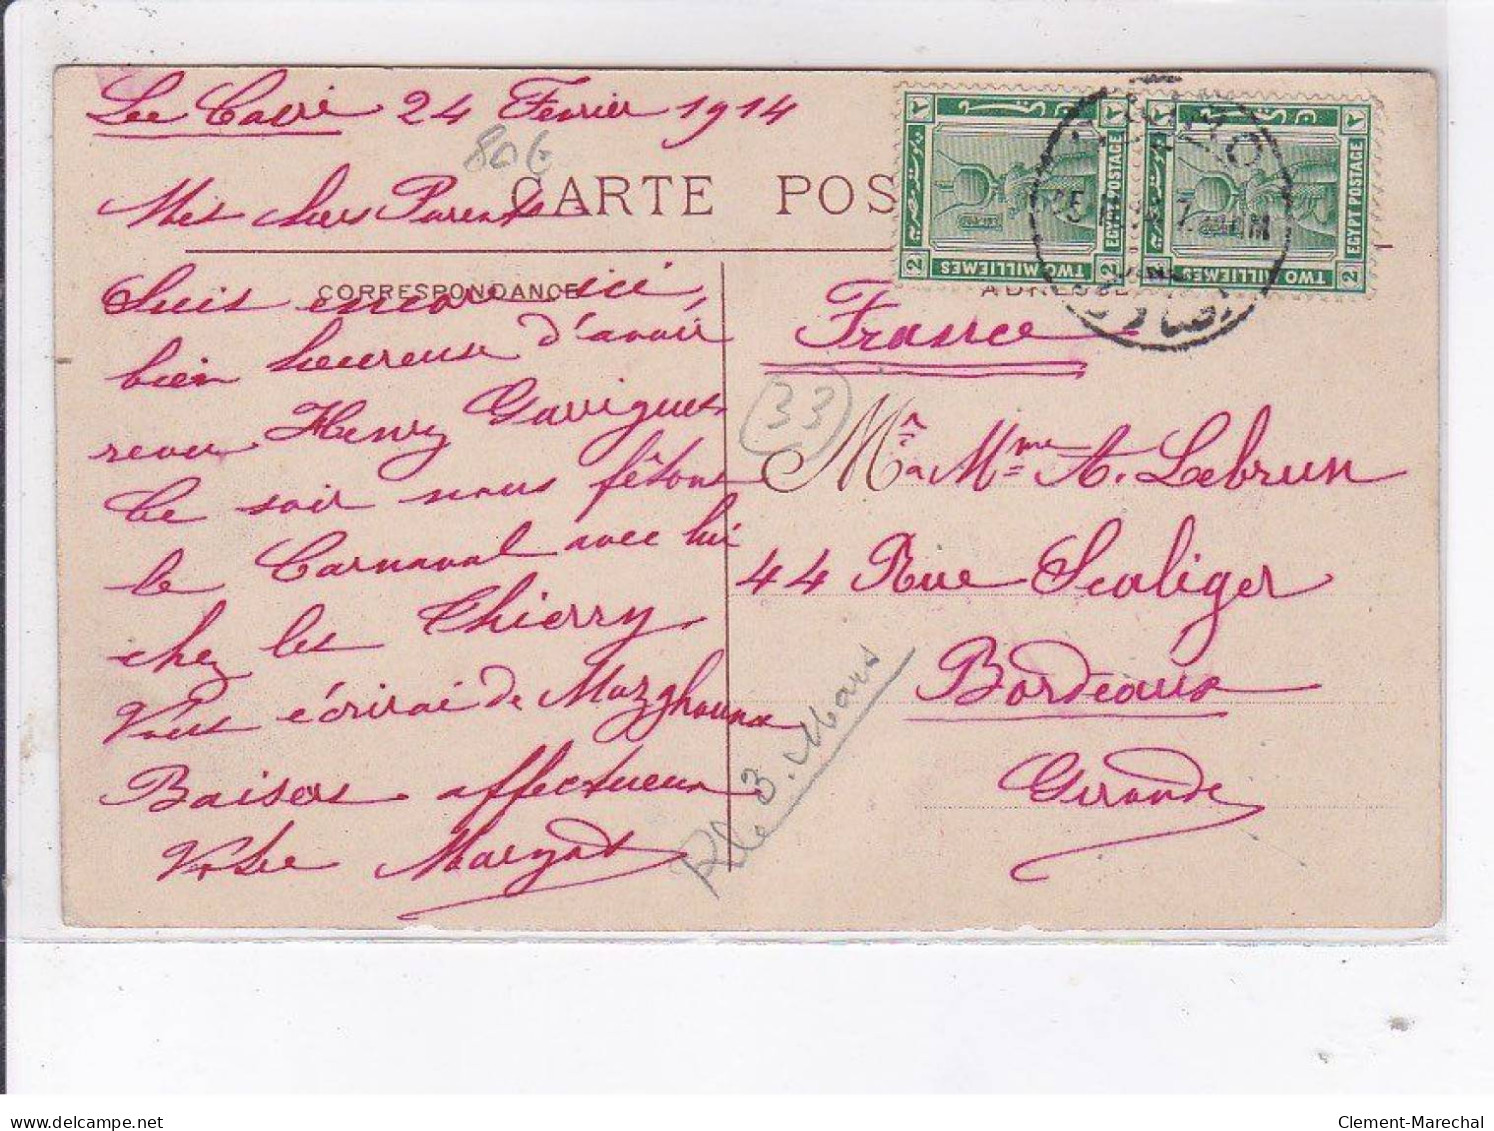 Le Caire 24 Février 1914
806
Mes chers Parents
CARTE POS
CORRESPONDANCE
Suis encore ici,
bien heureuse d'avoir
revu Henry Garrigues
Ce soir nous fêtons
le Carnaval avec lui
chez les Thierry
Vous écrirai de Mazghouna
Baisers affectueux
Votre Margot
Rlle 3. Mars
ADRESSE
France
33
Mr & Mme A. Lebrun
44 Rue Scaliger
Bordeaux
Gironde
EGYPT POSTAGE
TWO MILLIEMES
2 2
EGYPT POSTAGE
TWO MILLIEMES
2 2
CAIRO
25 II 7 AM
delcampe.net
Clement-Marechal